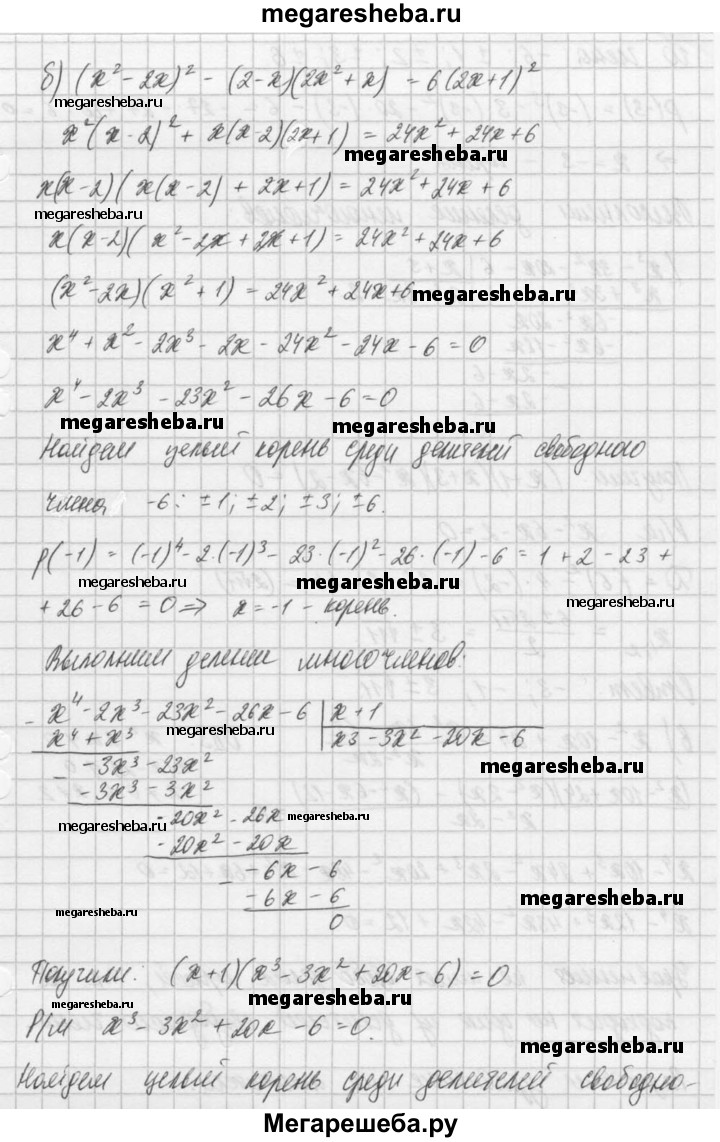 megaresheba.ru
б) (x² - 2x)² - (2-x)(2x² + x) = 6(2x+1)²
megaresheba.ru
x²(x-2)² + x(x-2)(2x+1) = 24x² + 24x + 6
megaresheba.ru
x(x-2)(x(x-2) + 2x+1) = 24x² + 24x + 6
megaresheba.ru
x(x-2)(x² - 2x + 2x + 1) = 24x² + 24x + 6
(x² - 2x)(x² + 1) = 24x² + 24x + 6
megaresheba.ru
x⁴ + x² - 2x³ - 2x - 24x² - 24x - 6 = 0
x⁴ - 2x³ - 23x² - 26x - 6 = 0
megaresheba.ru megaresheba.ru
Найдем целый корень среди делителей свободного
члена -6: ±1; ±2; ±3; ±6.
p(-1) = (-1)⁴ - 2·(-1)³ - 23·(-1)² - 26·(-1) - 6 = 1 + 2 - 23 +
megaresheba.ru megaresheba.ru
+ 26 - 6 = 0 ⇒ x = -1 - корень.
megaresheba.ru
Выполним деление многочленов:
- x⁴ - 2x³ - 23x² - 26x - 6 | x + 1
megaresheba.ru
x⁴ + x³ x3 - 3x² - 20x - 6
- -3x³ - 23x²
megaresheba.ru
-3x³ - 3x²
- 20x² - 26x
megaresheba.ru megaresheba.ru
- 20x² - 20x
- -6x - 6
-6x - 6
megaresheba.ru
megaresheba.ru
0
Получили: (x+1)(x³ - 3x² + 20x - 6) = 0
megaresheba.ru megaresheba.ru
Р/м x³ - 3x² + 20x - 6 = 0.
megaresheba.ru
Найдем целый корень среди делителей свободно-
Мегарешеба.ру